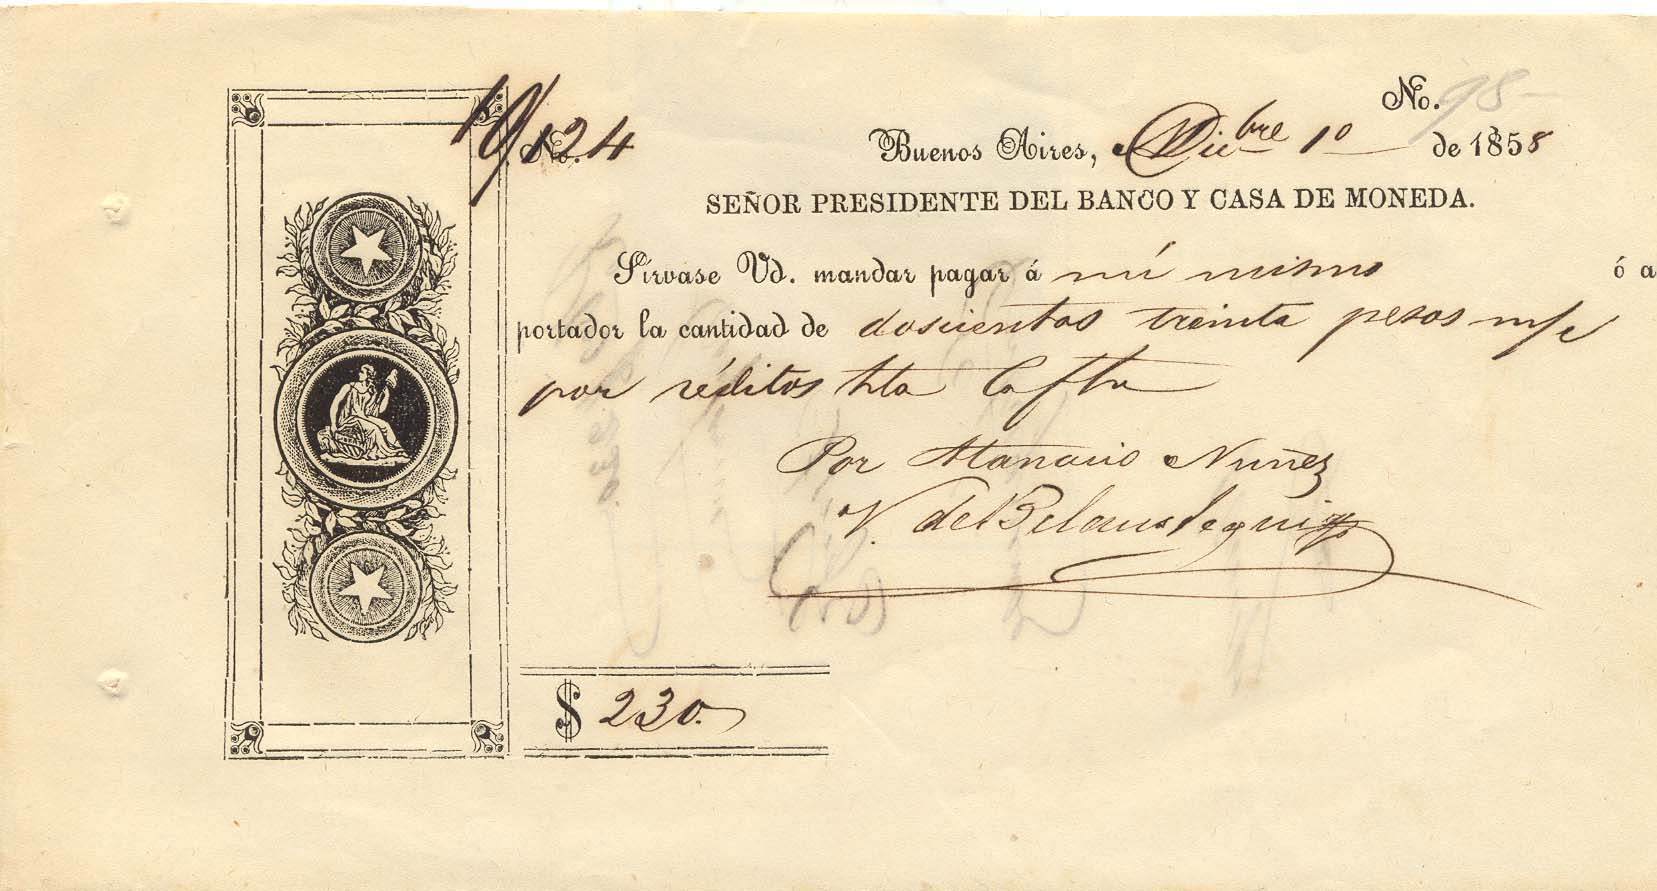 No. 98
10,124
Buenos Aires, Dicbre 10 de 1858
SEÑOR PRESIDENTE DEL BANCO Y CASA DE MONEDA.
Sirvase Vd. mandar pagar á mí mismo ó a
portador la cantidad de doscientos treinta pesos m/c
por réditos hta la fha
Por Atanacio Nuñez
V. de Belaustegui
$ 230.